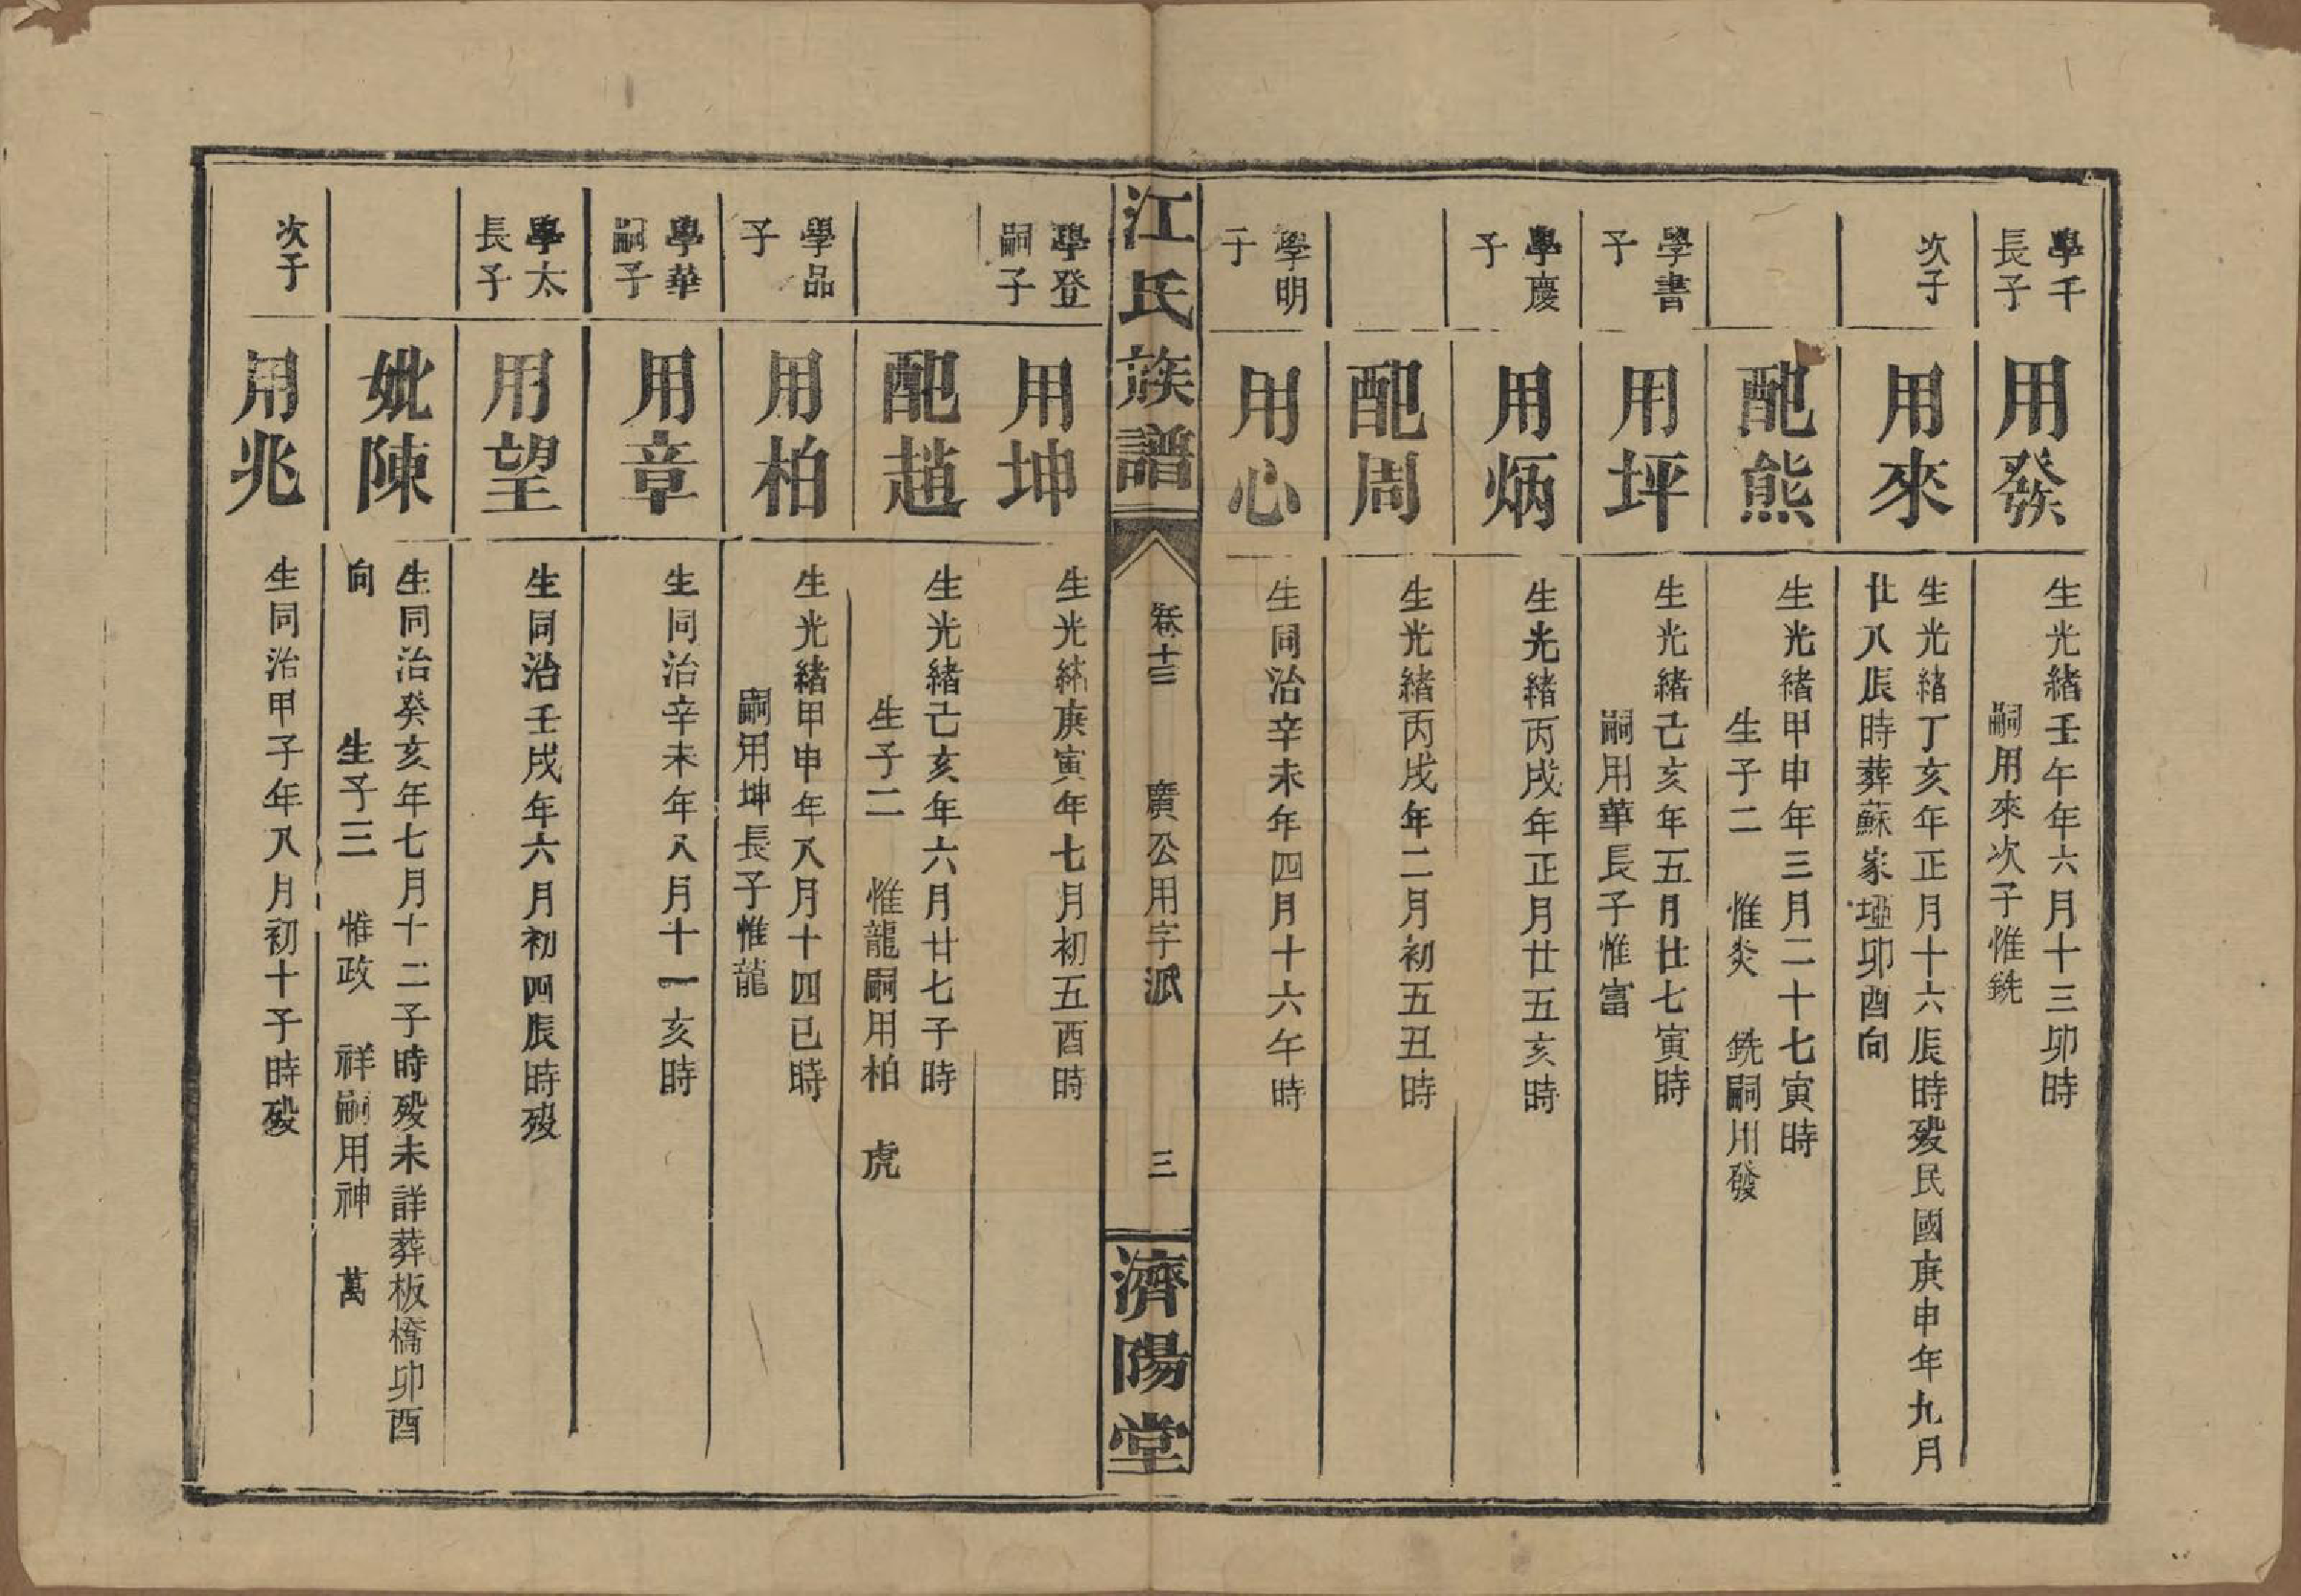 學千
長子
用發
生光緒壬午年六月十三卯時
嗣用來次子惟銑
次子
用來
生光緒丁亥年正月十六辰時歿民國庚申年九月
廿八辰時葬蘇家埡卯酉向
配熊
生光緒甲申年三月二十七寅時
生子二　惟炎　銑嗣用發
學書
子
用坪
生光緒己亥年五月廿七寅時
嗣用華長子惟富
學慶
子
用炳
生光緒丙戌年正月廿五亥時
配周
生光緒丙戌年二月初五丑時
學明
子
用心
生同治辛未年四月十六午時
江氏族譜
卷十三
廣公用字派
三
濟陽堂
學登
嗣子
用坤
生光緒庚寅年七月初五酉時
配趙
生光緒己亥年六月廿七子時
生子二　惟龍嗣用柏　虎
學品
子
用柏
生光緒甲申年八月十四巳時
嗣用坤長子惟龍
學華
嗣子
用章
生同治辛未年八月十一亥時
學太
長子
用望
生同治壬戌年六月初四辰時歿
妣陳
生同治癸亥年七月十二子時歿未詳葬板橋卯酉
向　生子三　惟政　祥嗣用神　萬
次子
用兆
生同治甲子年八月初十子時歿